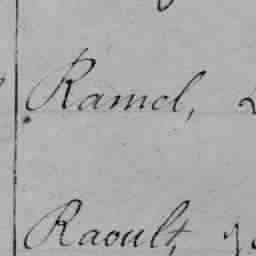 Ramel,
Raoult,